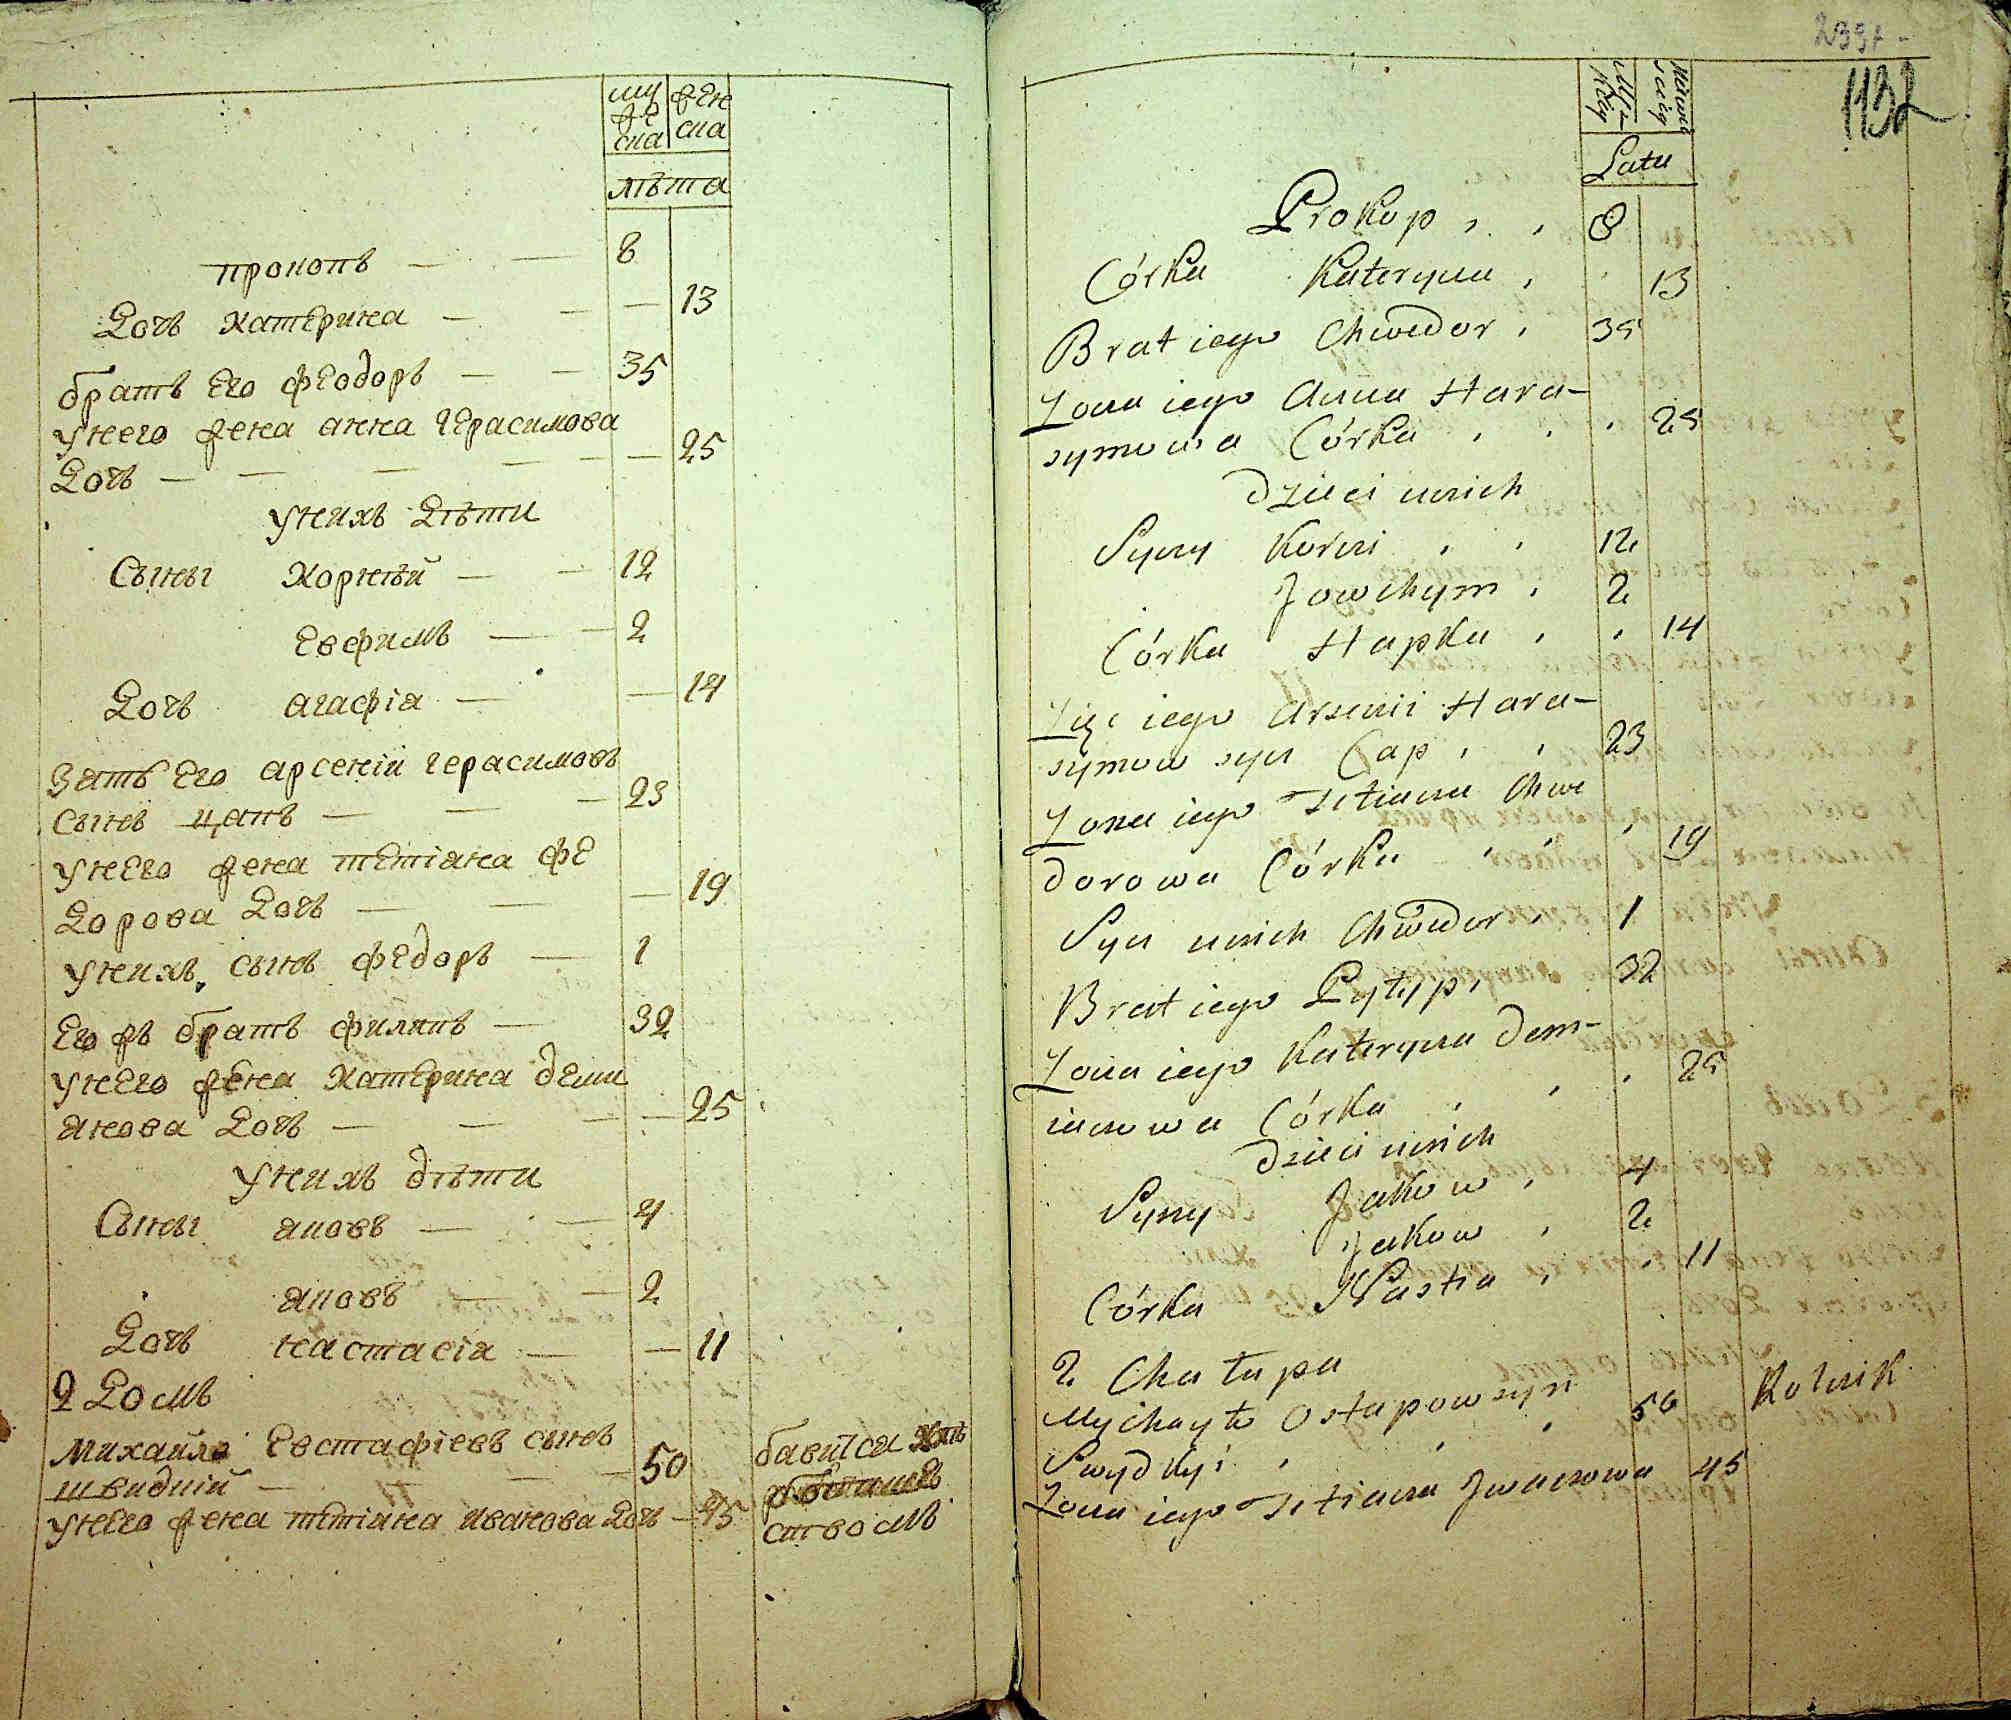 муже
ска
жен
ска
лѣта
прокопъ — — 8
Дочь Катерина — — — 13
братъ Его феодоръ — — 35
унего жена анна герасимова
Дочь — — — — — 25
унихъ Дѣти
Сыны Корнѣй — — 12
Евфимъ — — 2
Дочь агафіа — — 14
Зать Его арсеній герасимовъ
Сынъ цапъ — — — 23
унЕго жена тетіана фе
Дорова Дочь — — — 19
унихъ сынъ феdоръ — 1
Его жъ братъ филипъ — 32
унЕго жена Катерина деми
анова Дочь — — — — 25
унихъ дѣти
Сыны аковъ — — 4
аковъ — — 2
Дочь настасіа — — 11
2 Домъ
Михайло Евстафіевъ сынъ
швидкій — — — 50 бавитса
унЕго жена тетіана иванова Дочь — 45
ством
2397-
1132
Męzka
Żeńska
Latu
Prokop , , 8
Córka Kateryna , . 13
Brat iego Chwedor , 35
Żona iego Anna Hara-
symowa Córka , , , 25
Dzieci u nich
Syny Korni , , 12
Jowchym , 2
Córka Hapka , , 14
Zięć iego Arsenii Hara-
symow syn Cap , , 23
Żona iego Tetiana Chwe
dorowa Córka , , , 19
Syn u nich Chwedor , 1
Brat iego Pyłyp , 32
Żona iego Kateryna Dem-
ianowa Córka , , , 25
Dzieci u nich
Syny Jakow , 4
Jakow , 2
Córka Nastia , , 11
2 Chałupa
Mychayło Ostapow syn
Swydkyi , , , 50 Rolnik
Żona iego Tetiana Jwanowa 45